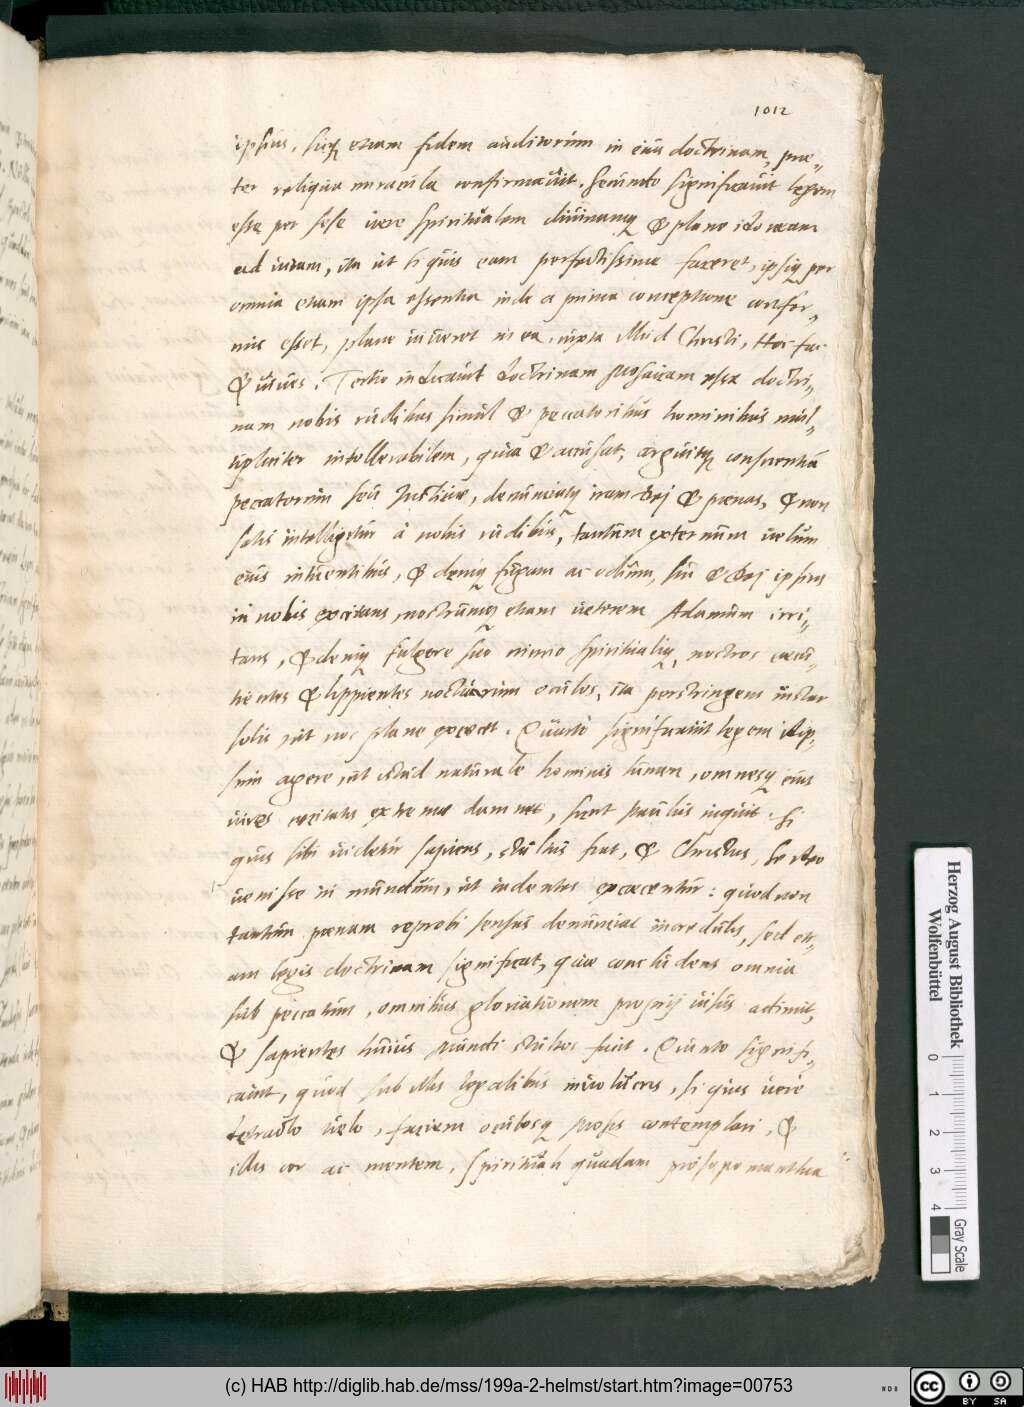 1012
ipsius, sicq̨ etiam fidem auditorum in eius doctrinam, prae„
ter reliqua miracula confirmauit. Secundo significauit legem
esse per sese uere spiritualem diuinamq̨ & plane idoneam
ad uitam, ita ut si quis eam perfectissime faceret, ipsiq̨ per
omnia etiam ipsa essentia inde a prima conceptione confor„
mis esset, plane uiueret in ea, iuxta illud Christi, Hoc fac
& uiues. Tertio indicauit doctrinam Mosaicam esse doctri„
nam nobis rudibus simul & peccatoribus hominibus mul„
tipliciter intollerabilem, quia & accusat, arguitq̨ conscientiā
peccatorum seu Justiciae, denunciatq̨ iram Dej & poenas, & non
satis intelligitur à nobis rudibus, tantum externum uelum
eius intuentibus, & deniq̨ fugam ac odium, sui & Dej ipsius
in nobis excitans, nostrumq̨ etiam ueterem Adamum irri„
tans, & deniq̨ fulgore suo nimio spiritualiq̨, nostros caecu„
tientes & lippientes noctuarum oculos, ita perstringens instar
solis, ut nos plane excaecet. Quarto significauit legem id ip„
sum agere, ut istud naturale hominis lumen, omnesq̨ eius
uires caecitatis extremae damnet, sicut Paulus inquit. Si
quis sibi uidetur sapiens, stultus fiat, & Christus, se ideo
uenisse in mundum, ut uidentes excaecentur: quod non
tantum poenam reprobi sensus denunciat incredulis, sed eti„
am legis doctrinam significat, quae concludens omnia
sub peccatum, omnibus gloriationem proprij uisus adimit,
& sapientes huius mundi stultos facit. Quinto signifi„
cauit, quod sub illis legalibus inuolucris, si quis uere
detracto uelo, faciem oculosq̨ Mosis contemplari, &
illis cor ac mentem, spirituali quadam
(c) HAB http://diglib.hab.de/mss/199a-2-helmst/start.htm?image=00753
Herzog August Bibliothek
Wolfenbüttel
0 1 2 3 4
Gray Scale
cc BY SA